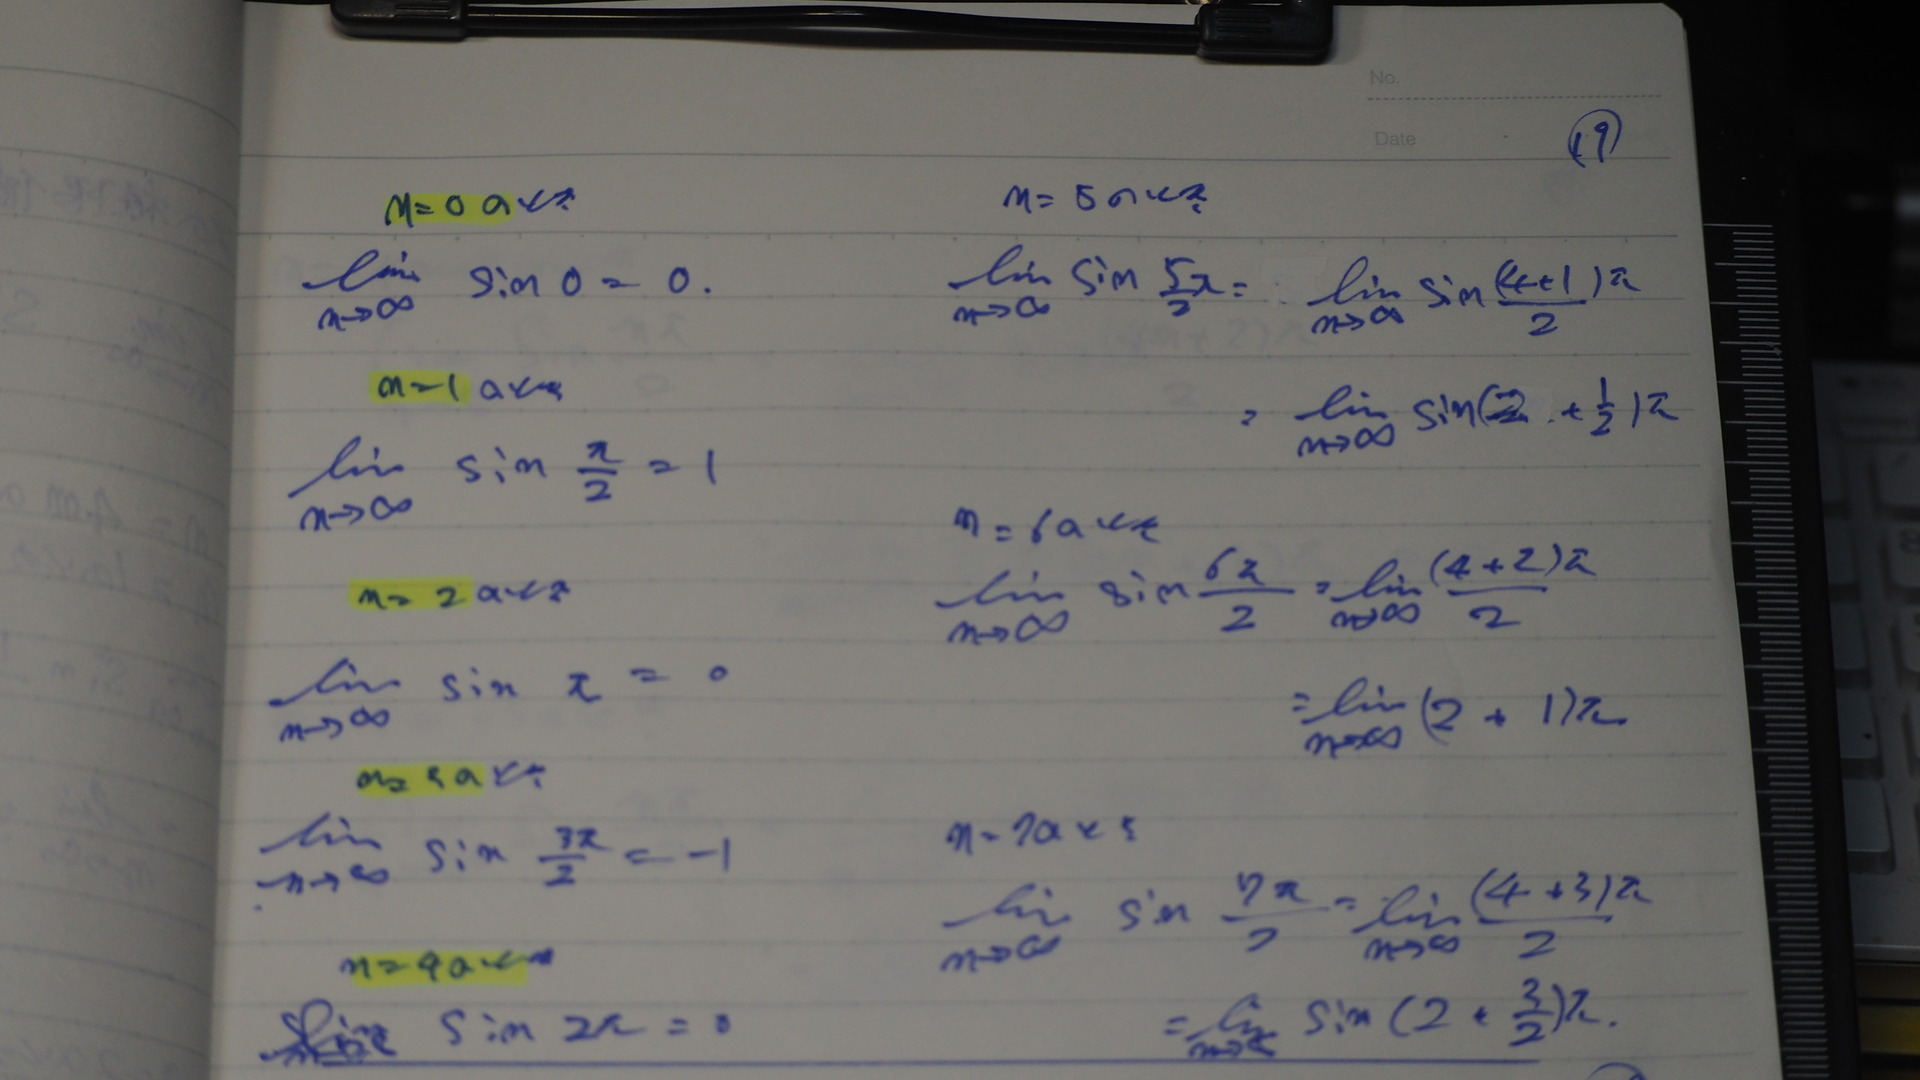 No.
Date
19
n=0のとき
lim n→∞ sin 0 = 0.
n=1のとき
lim n→∞ sin π/2 = 1
n=2のとき
lim n→∞ sin π = 0
n=3のとき
lim n→∞ sin 3π/2 = -1
n=4のとき
sin 2π = 0
n=5のとき
lim n→∞ sin 5π/2 = lim n→∞ sin (4+1)π/2
= lim n→∞ sin(2 + 1/2)π
n=6のとき
lim n→∞ sin 6π/2 = lim n→∞ (4+2)π/2
= lim n→∞ (2 + 1)π
n=7のとき
lim n→∞ sin 7π/2 = lim n→∞ (4+3)π/2
= lim n→∞ sin (2 + 3/2)π.